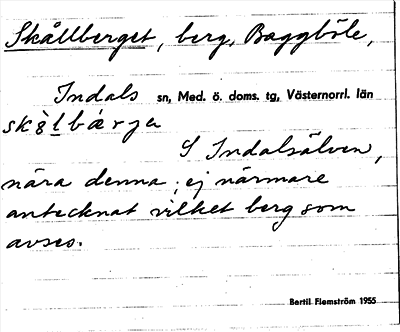 Skållberget, berg, Baggböle,
Indals sn, Med. ö. doms. tg, Västernorrl. län
skò̀lbǽrjɐ
S Indalsälven,
nära denna; ej närmare
antecknat vilket berg som
avses.
Bertil Flemström 1955